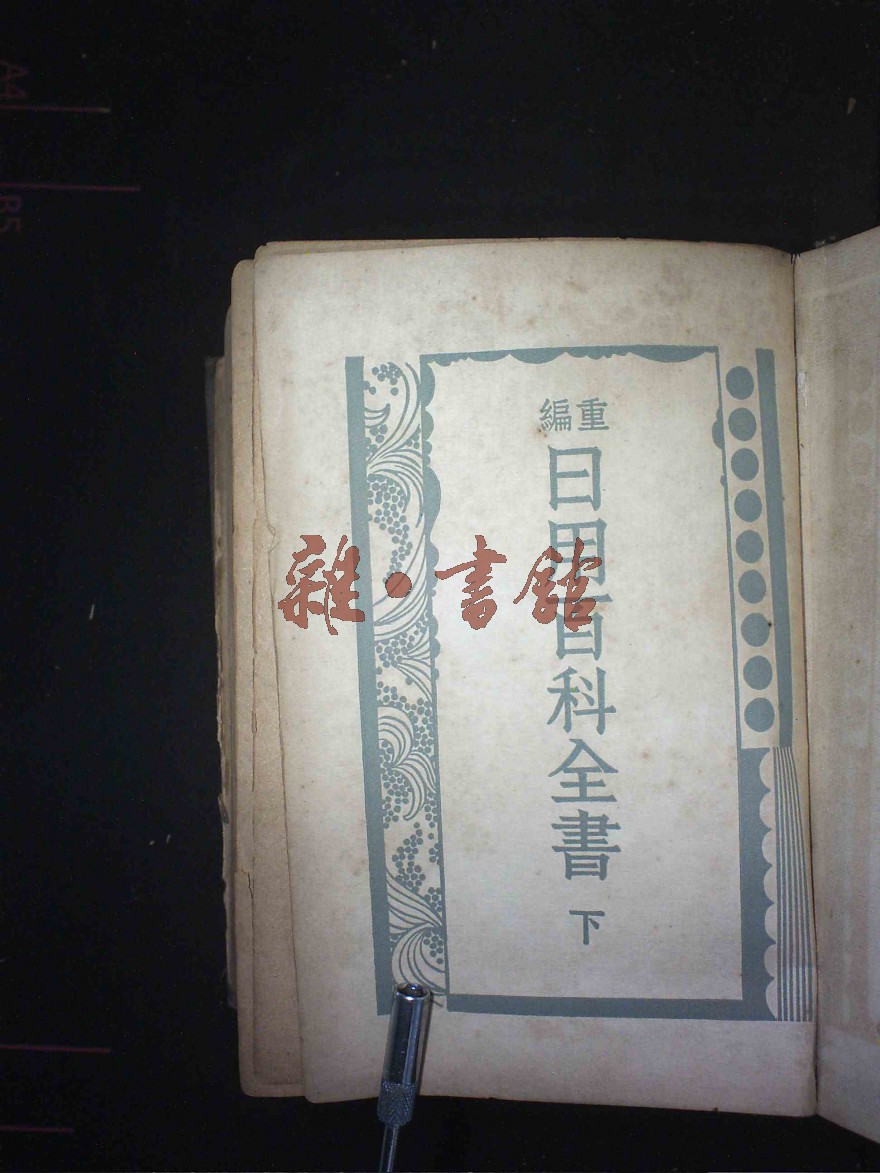 重編
日用百科全書
下
雜·書館
A4
B5